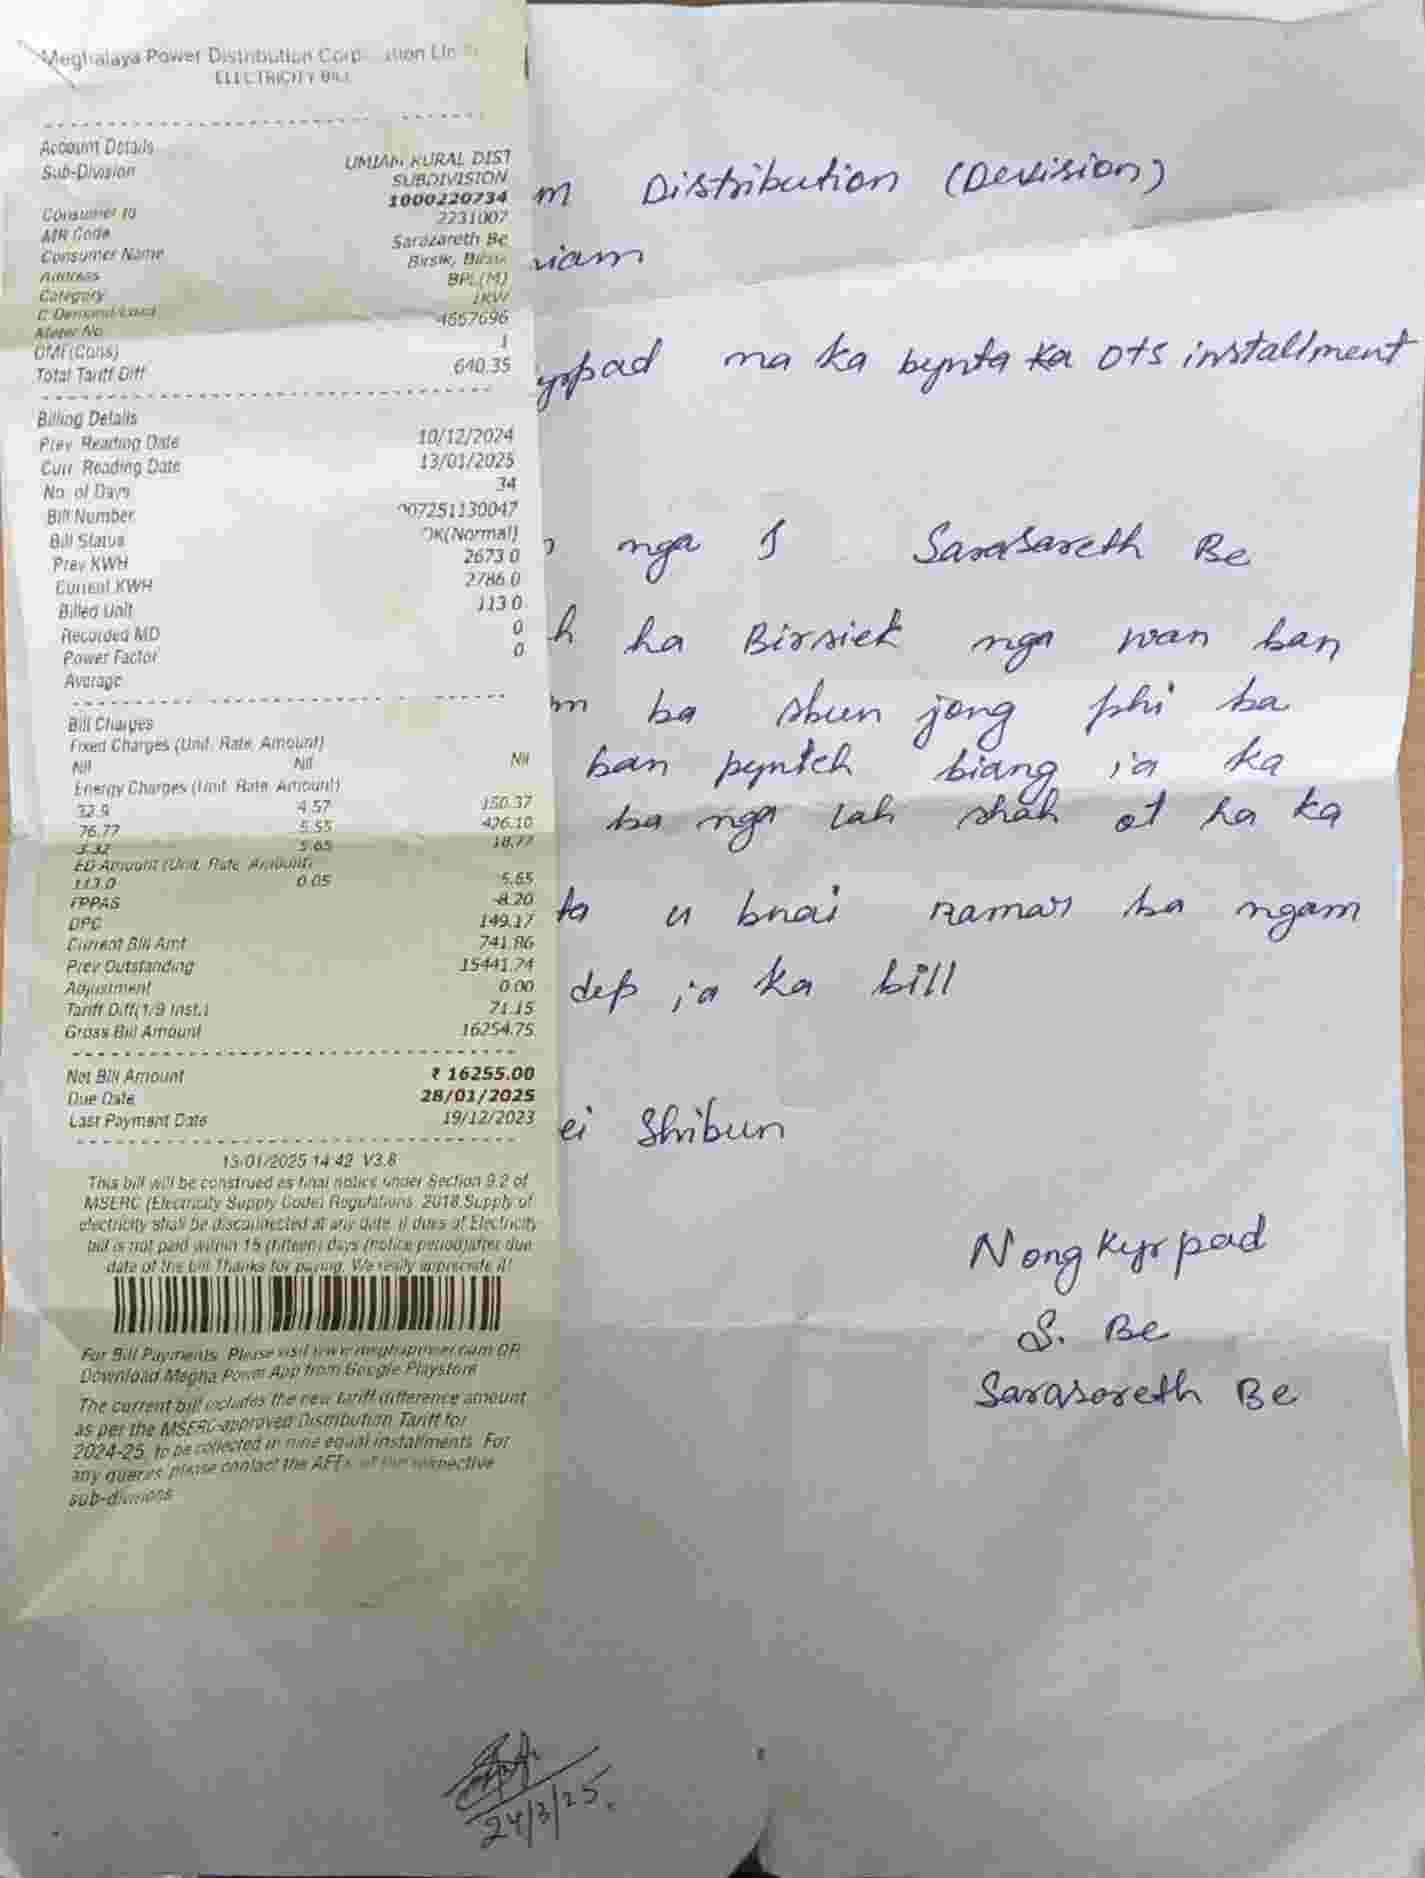 Meghalaya Power Distribution Corp
ELECTRICITY BILL
Account Details
Sub-Division UMIAM RURAL DIST
SUBDIVISION
Consumer Id 1000220734
MR Code 2231007
Consumer Name Sarazareth Be
Address Birsik, Birsik
Category BPL(M)
C Demand/Load 1KW
Meter No 4557696
OMF(Cons) 1
Total Tariff Diff 640.35
Billing Details
Prev Reading Date 10/12/2024
Curr Reading Date 13/01/2025
No. of Days 34
Bill Number 007251130047
Bill Status OK(Normal)
Prev KWH 2673.0
Current KWH 2786.0
Billed Unit 113.0
Recorded MD 0
Power Factor 0
Average
Bill Charges
Fixed Charges (Unit, Rate, Amount)
Nil Nil Nil
Energy Charges (Unit, Rate, Amount)
32.9 4.57 150.37
76.77 5.55 426.10
3.32 5.65 18.77
ED Amount (Unit, Rate, Amount)
113.0 0.05 5.65
FPPAS -8.20
DPC 149.17
Current Bill Amt 741.86
Prev Outstanding 15441.74
Adjustment 0.00
Tariff Diff(1/9 Inst.) 71.15
Gross Bill Amount 16254.75
Net Bill Amount ₹ 16255.00
Due Date 28/01/2025
Last Payment Date 19/12/2023
13/01/2025 14:42 V3.8
This bill will be construed as final notice under Section 9.2 of
MSERC (Electricity Supply Code) Regulations, 2018.Supply of
electricity shall be disconnected at any date, if dues of Electricity
bill is not paid within 15 (fifteen) days (notice period)after due
date of the bill.Thanks for paying. We really appreciate it!
For Bill Payments, Please visit www.meghapower.com OR
Download Megha Power App from Google Playstore
The current bill includes the new tariff difference amount
as per the MSERC-approved Distribution Tariff for
2024-25, to be collected in nine equal installments. For
any queries please contact the AEEs of the respective
sub-divisions
m Distribution (Devision)
niam
yrpad ma ka bynta ka OTS installment
nga I Sarasareth Be
h ha Birsiek nga wan ban
m ba shun jong phi ba
ban pynteh biang ia ka
ba nga lah shah ot ha ka
ta u bnai namar ba ngam
dep ia ka bill
ei Shibun
Nongkyrpad
S. Be
Sarasareth Be
24/3/25.